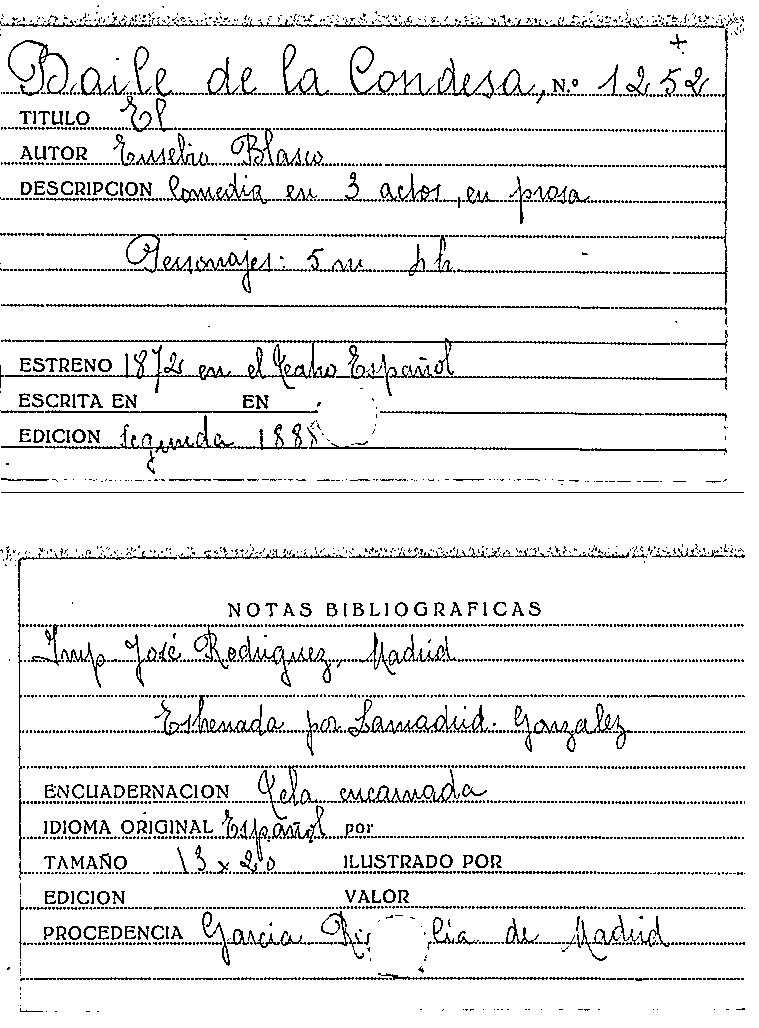 Baile de la Condesa, N.º 1252
TITULO El
AUTOR Eusebio Blasco
DESCRIPCION Comedia en 3 actos, en prosa
Personajes: 5 m
ESTRENO 1872 en el Teatro Español
ESCRITA EN EN
EDICION Segunda 1888
NOTAS BIBLIOGRAFICAS
Imp José Rodriguez, Madrid
Estrenada por Lamadrid. Gonzalez
ENCUADERNACION Tela encarnada
IDIOMA ORIGINAL Español por
TAMAÑO 13 x 20 ILUSTRADO POR
EDICION VALOR
PROCEDENCIA Garcia de Madrid